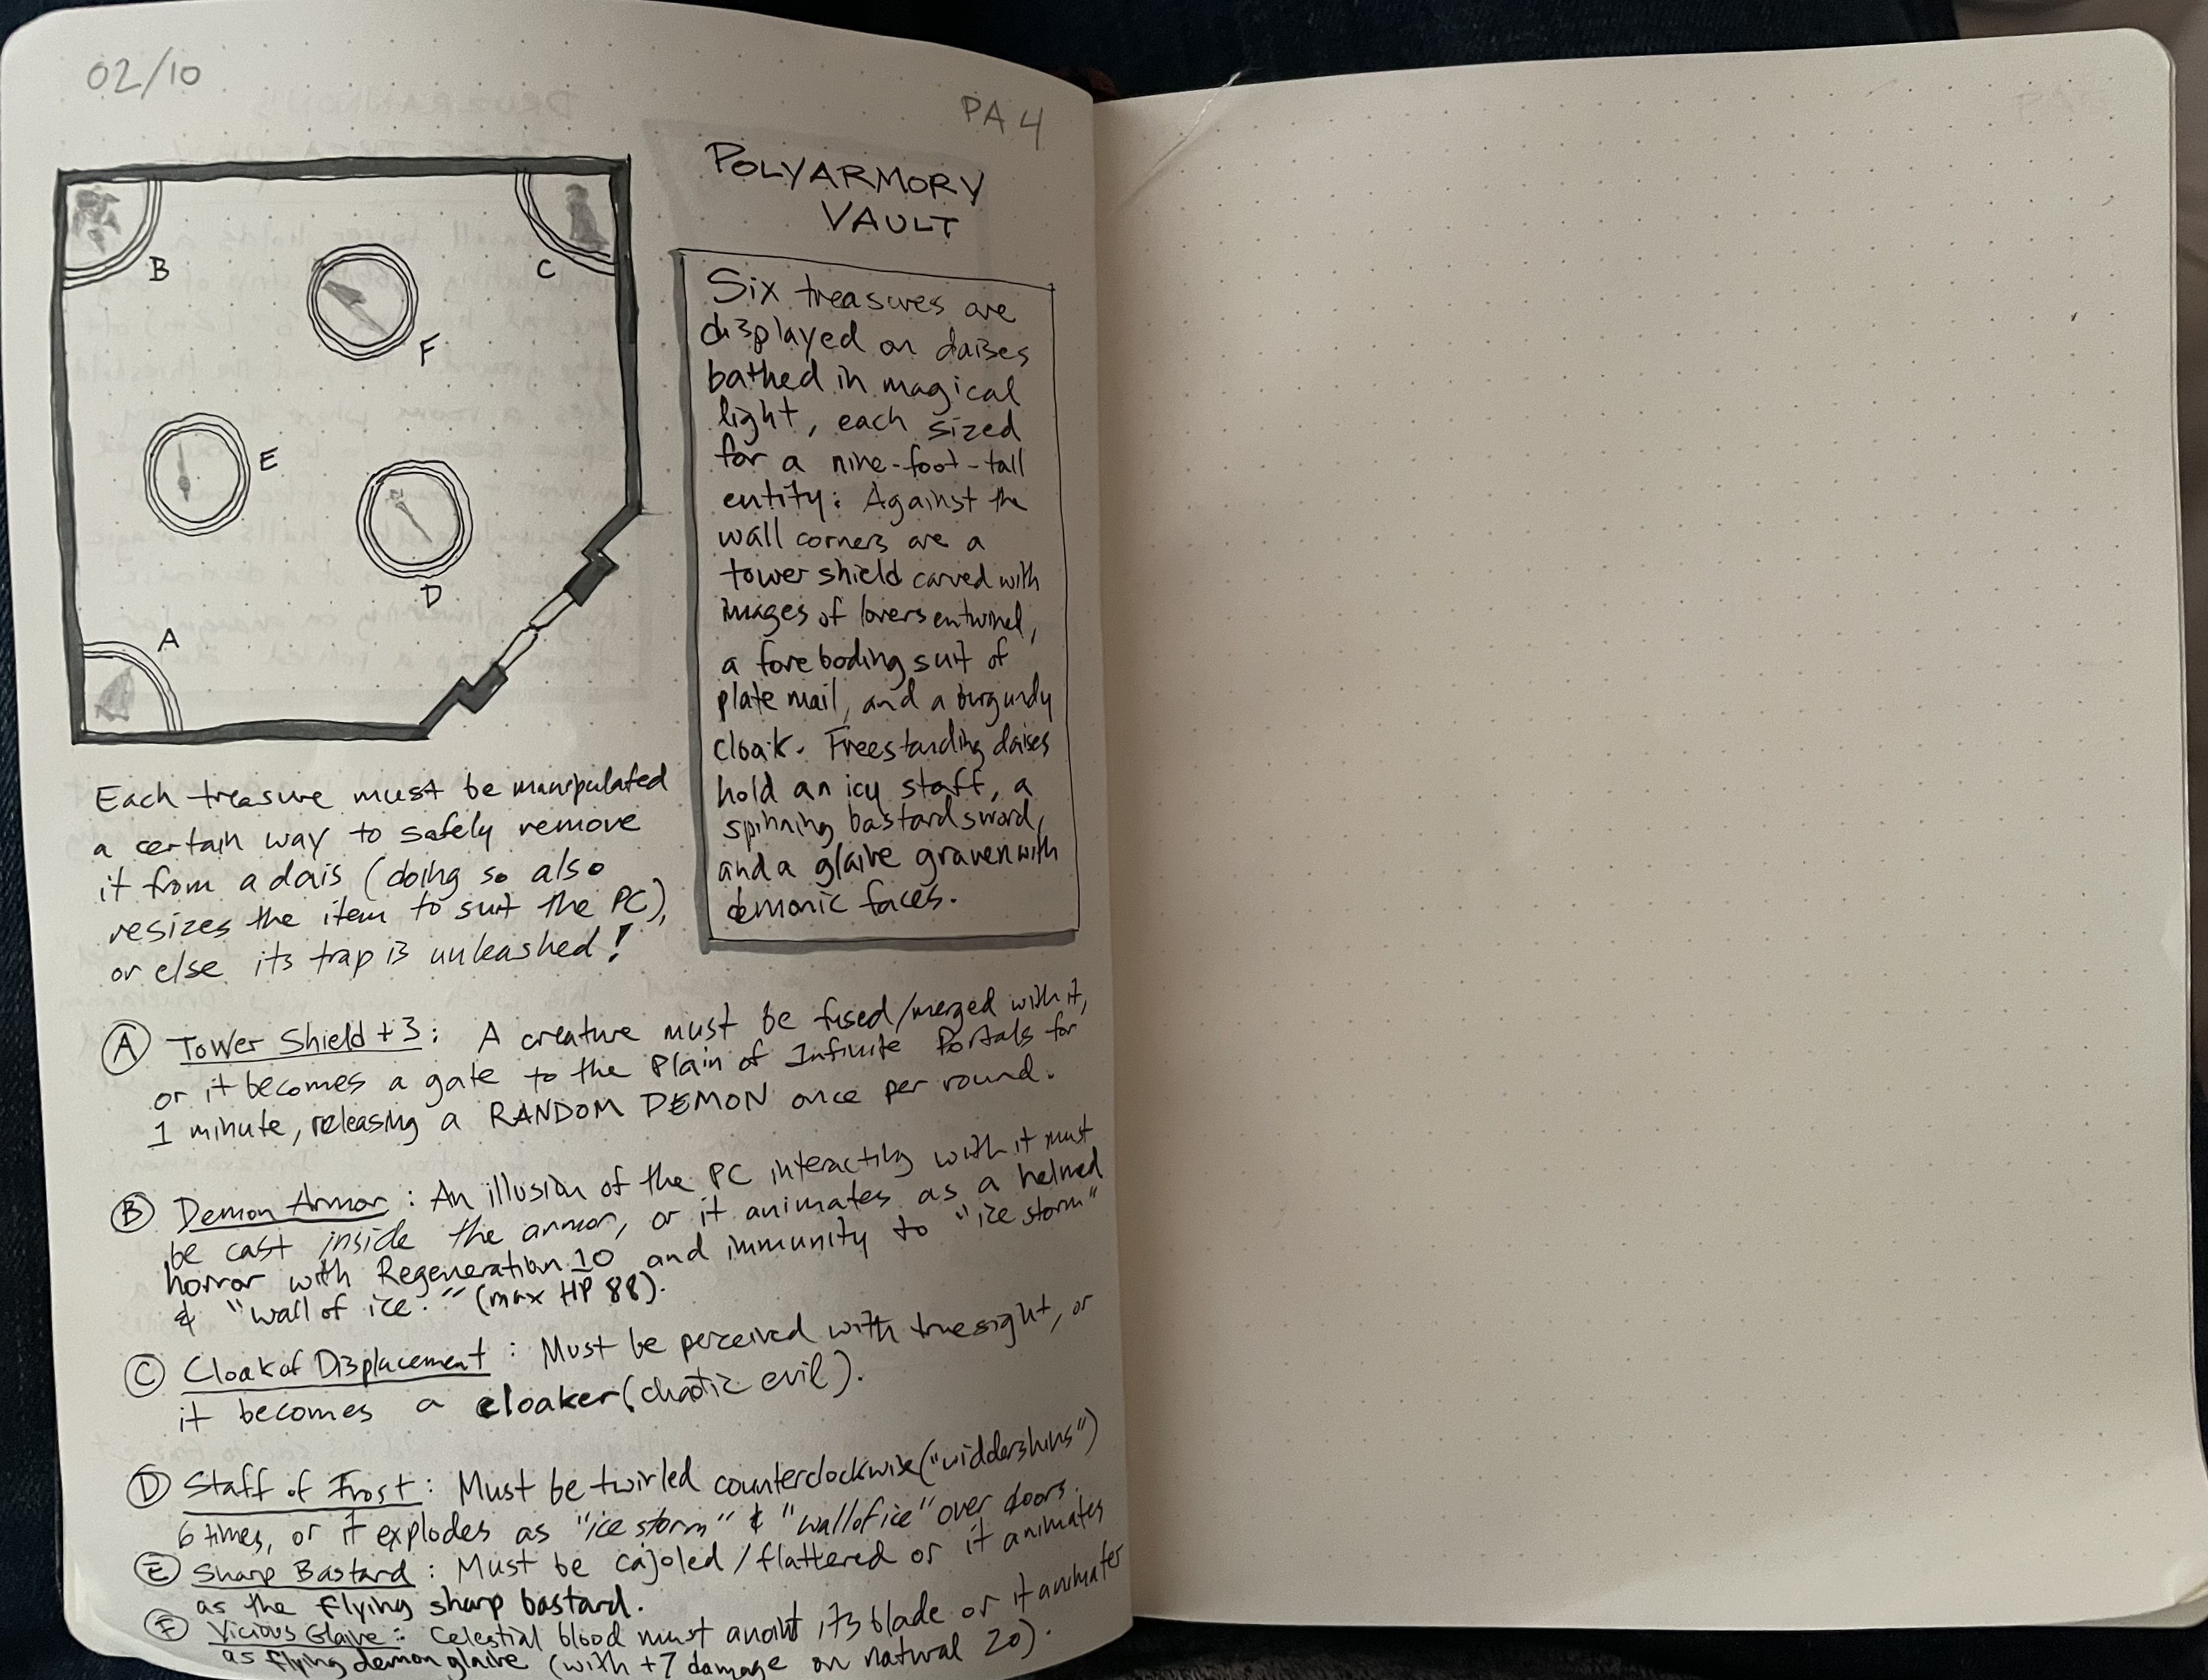 02/10
PA 4
POLYARMORY
VAULT
B
C
F
E
D
A
Six treasures are
displayed on daises
bathed in magical
light, each sized
for a nine-foot-tall
entity: Against the
wall corners are a
tower shield carved with
images of lovers entwined,
a foreboding suit of
plate mail, and a burgundy
cloak. Freestanding daises
hold an icy staff, a
spinning bastard sword,
and a glaive graven with
demonic faces.
Each treasure must be manipulated
a certain way to safely remove
it from a dais (doing so also
resizes the item to suit the PC),
or else its trap is unleashed!
A Tower Shield +3: A creature must be fused/merged with it,
or it becomes a gate to the Plain of Infinite Portals for
1 minute, releasing a RANDOM DEMON once per round.
B Demon Armor: An illusion of the PC interacting with it must
be cast inside the armor, or it animates as a helmed
horror with Regeneration 10 and immunity to "ice storm"
& "wall of ice." (max HP 88).
C Cloak of Displacement: Must be perceived with truesight, or
it becomes a cloaker (chaotic evil).
D Staff of Frost: Must be twirled counterclockwise ("widdershins")
6 times, or it explodes as "ice storm" & "wall of ice" over doors.
E Sharp Bastard: Must be cajoled/flattered or it animates
as the flying sharp bastard.
F Vicious Glaive: Celestial blood must anoint its blade or it animates
as flying demon glaive (with +7 damage on natural 20).